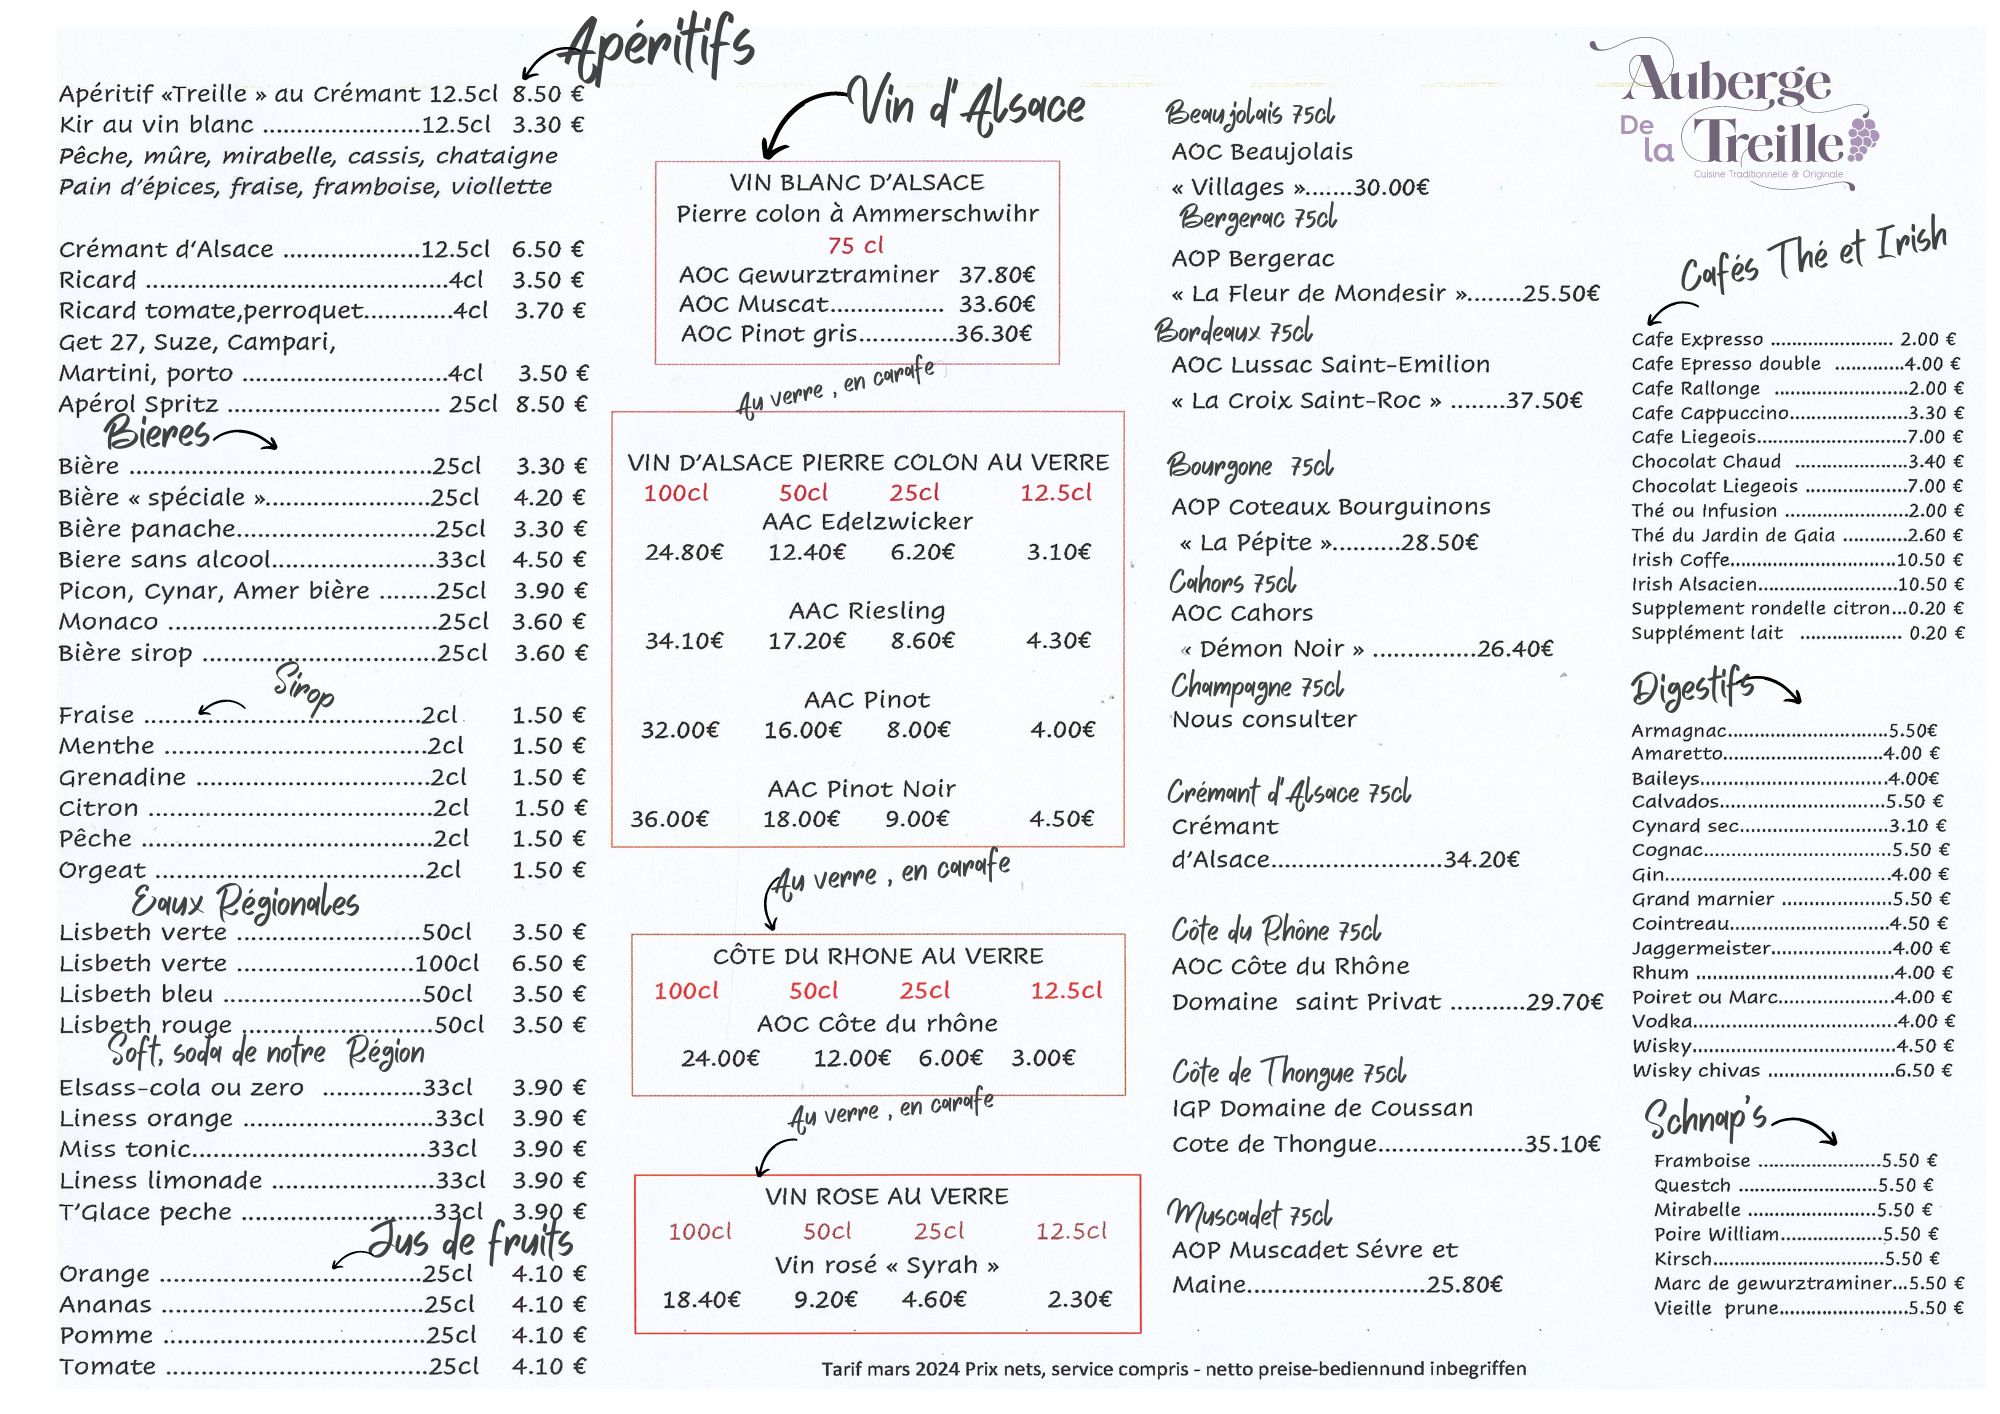 Apéritifs
Apéritif «Treille » au Crémant 12.5cl 8.50 €
Kir au vin blanc .......................12.5cl 3.30 €
Pêche, mûre, mirabelle, cassis, chataigne
Pain d'épices, fraise, framboise, viollette
Crémant d'Alsace ....................12.5cl 6.50 €
Ricard ...........................................4cl 3.50 €
Ricard tomate,perroquet.............4cl 3.70 €
Get 27, Suze, Campari,
Martini, porto .............................4cl 3.50 €
Apérol Spritz .............................. 25cl 8.50 €
Bieres
Bière ...........................................25cl 3.30 €
Bière « spéciale ».......................25cl 4.20 €
Bière panache............................25cl 3.30 €
Biere sans alcool.......................33cl 4.50 €
Picon, Cynar, Amer bière ........25cl 3.90 €
Monaco ......................................25cl 3.60 €
Bière sirop .................................25cl 3.60 €
Sirop
Fraise .......................................2cl 1.50 €
Menthe .....................................2cl 1.50 €
Grenadine .................................2cl 1.50 €
Citron ........................................2cl 1.50 €
Pêche .........................................2cl 1.50 €
Orgeat ......................................2cl 1.50 €
Eaux Régionales
Lisbeth verte ..........................50cl 3.50 €
Lisbeth verte .........................100cl 6.50 €
Lisbeth bleu ............................50cl 3.50 €
Lisbeth rouge ...........................50cl 3.50 €
Soft, soda de notre Région
Elsass-cola ou zero ..............33cl 3.90 €
Liness orange ...........................33cl 3.90 €
Miss tonic.................................33cl 3.90 €
Liness limonade .......................33cl 3.90 €
T'Glace peche ...........................33cl 3.90 €
Jus de fruits
Orange .....................................25cl 4.10 €
Ananas .....................................25cl 4.10 €
Pomme .....................................25cl 4.10 €
Tomate .....................................25cl 4.10 €
Vin d'Alsace
VIN BLANC D'ALSACE
Pierre colon à Ammerschwihr
75 cl
AOC Gewurztraminer 37.80€
AOC Muscat................ 33.60€
AOC Pinot gris..............36.30€
Au verre , en carafe
VIN D'ALSACE PIERRE COLON AU VERRE
100cl 50cl 25cl 12.5cl
AAC Edelzwicker
24.80€ 12.40€ 6.20€ 3.10€
AAC Riesling
34.10€ 17.20€ 8.60€ 4.30€
AAC Pinot
32.00€ 16.00€ 8.00€ 4.00€
AAC Pinot Noir
36.00€ 18.00€ 9.00€ 4.50€
Au verre , en carafe
CÔTE DU RHONE AU VERRE
100cl 50cl 25cl 12.5cl
AOC Côte du rhône
24.00€ 12.00€ 6.00€ 3.00€
Au verre , en carafe
VIN ROSE AU VERRE
100cl 50cl 25cl 12.5cl
Vin rosé « Syrah »
18.40€ 9.20€ 4.60€ 2.30€
Beaujolais 75cl
AOC Beaujolais
« Villages ».......30.00€
Bergerac 75cl
AOP Bergerac
« La Fleur de Mondesir »........25.50€
Bordeaux 75cl
AOC Lussac Saint-Emilion
« La Croix Saint-Roc » ........37.50€
Bourgone 75cl
AOP Coteaux Bourguinons
« La Pépite »..........28.50€
Cahors 75cl
AOC Cahors
« Démon Noir » ...............26.40€
Champagne 75cl
Nous consulter
Crémant d'Alsace 75cl
Crémant
d'Alsace.........................34.20€
Côte du Rhône 75cl
AOC Côte du Rhône
Domaine saint Privat ...........29.70€
Côte de Thongue 75cl
IGP Domaine de Coussan
Cote de Thongue.....................35.10€
Muscadet 75cl
AOP Muscadet Sévre et
Maine..........................25.80€
Auberge
De la Treille
Cuisine Traditionnelle & Originale
Cafés Thé et Irish
Cafe Expresso ....................... 2.00 €
Cafe Epresso double .............4.00 €
Cafe Rallonge .........................2.00 €
Cafe Cappuccino......................3.30 €
Cafe Liegeois............................7.00 €
Chocolat Chaud .....................3.40 €
Chocolat Liegeois ...................7.00 €
Thé ou Infusion .......................2.00 €
Thé du Jardin de Gaia ............2.60 €
Irish Coffe...............................10.50 €
Irish Alsacien..........................10.50 €
Supplement rondelle citron...0.20 €
Supplément lait ................... 0.20 €
Digestifs
Armagnac..............................5.50€
Amaretto..............................4.00 €
Baileys...................................4.00€
Calvados...............................5.50 €
Cynard sec............................3.10 €
Cognac...................................5.50 €
Gin..........................................4.00 €
Grand marnier ....................5.50 €
Cointreau..............................4.50 €
Jaggermeister......................4.00 €
Rhum .....................................4.00 €
Poiret ou Marc.....................4.00 €
Vodka......................................4.00 €
Wisky......................................4.50 €
Wisky chivas .......................6.50 €
Schnap's
Framboise .......................5.50 €
Questch ..........................5.50 €
Mirabelle ........................5.50 €
Poire William...................5.50 €
Kirsch................................5.50 €
Marc de gewurztraminer...5.50 €
Vieille prune........................5.50 €
Tarif mars 2024 Prix nets, service compris - netto preise-bediennund inbegriffen